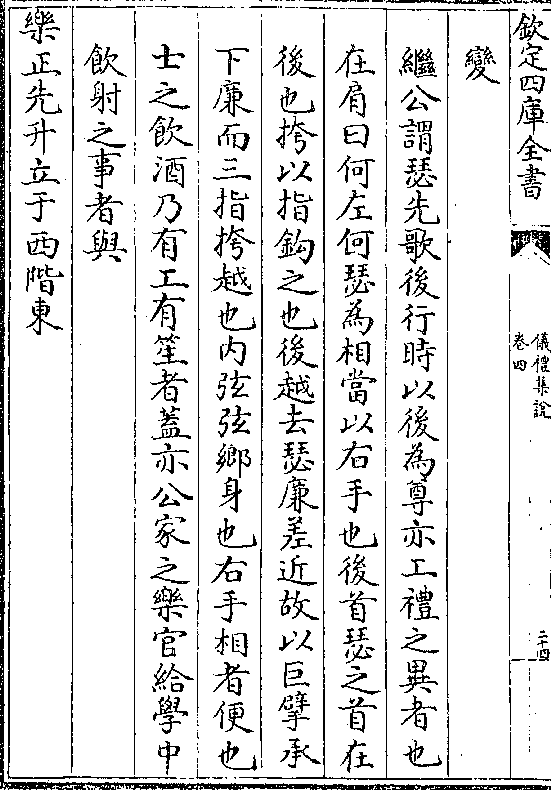 欽定四庫全書
儀禮集說
卷四
二十四
變
繼公謂瑟先歌後行時以後為尊亦工禮之異者也
在肩曰何左何瑟為相當以右手也後首瑟之首在
後也挎以指鈎之也後越去瑟廉差近故以巨擘承
下廉而三指挎越也内弦弦鄉身也右手相者便也
士之飲酒乃有工有笙者蓋亦公家之樂官給學中
飲射之事者與
樂正先升立于西階東